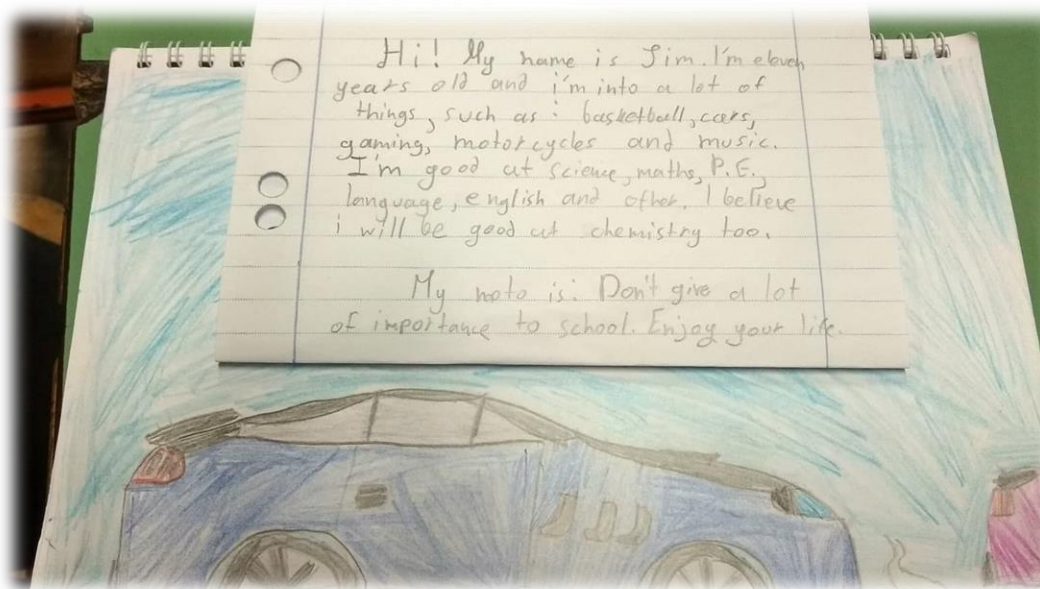 Hi! My name is Jim. I'm eleven
years old and i'm into a lot of
things, such as: basketball, cars,
gaming, motorcycles and music.
I'm good at science, maths, P.E.,
language, english and other. I believe
i will be good at chemistry too.
My moto is: Don't give a lot
of importance to school. Enjoy your life.